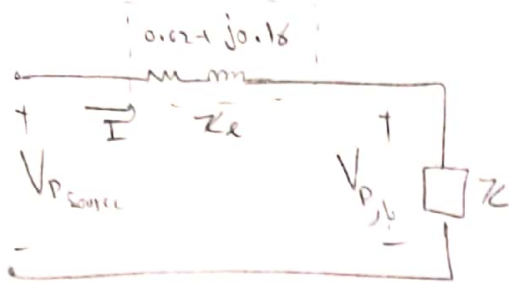 0.02+ j0.16
+ I Ze +
VP source VP بار Z
- -